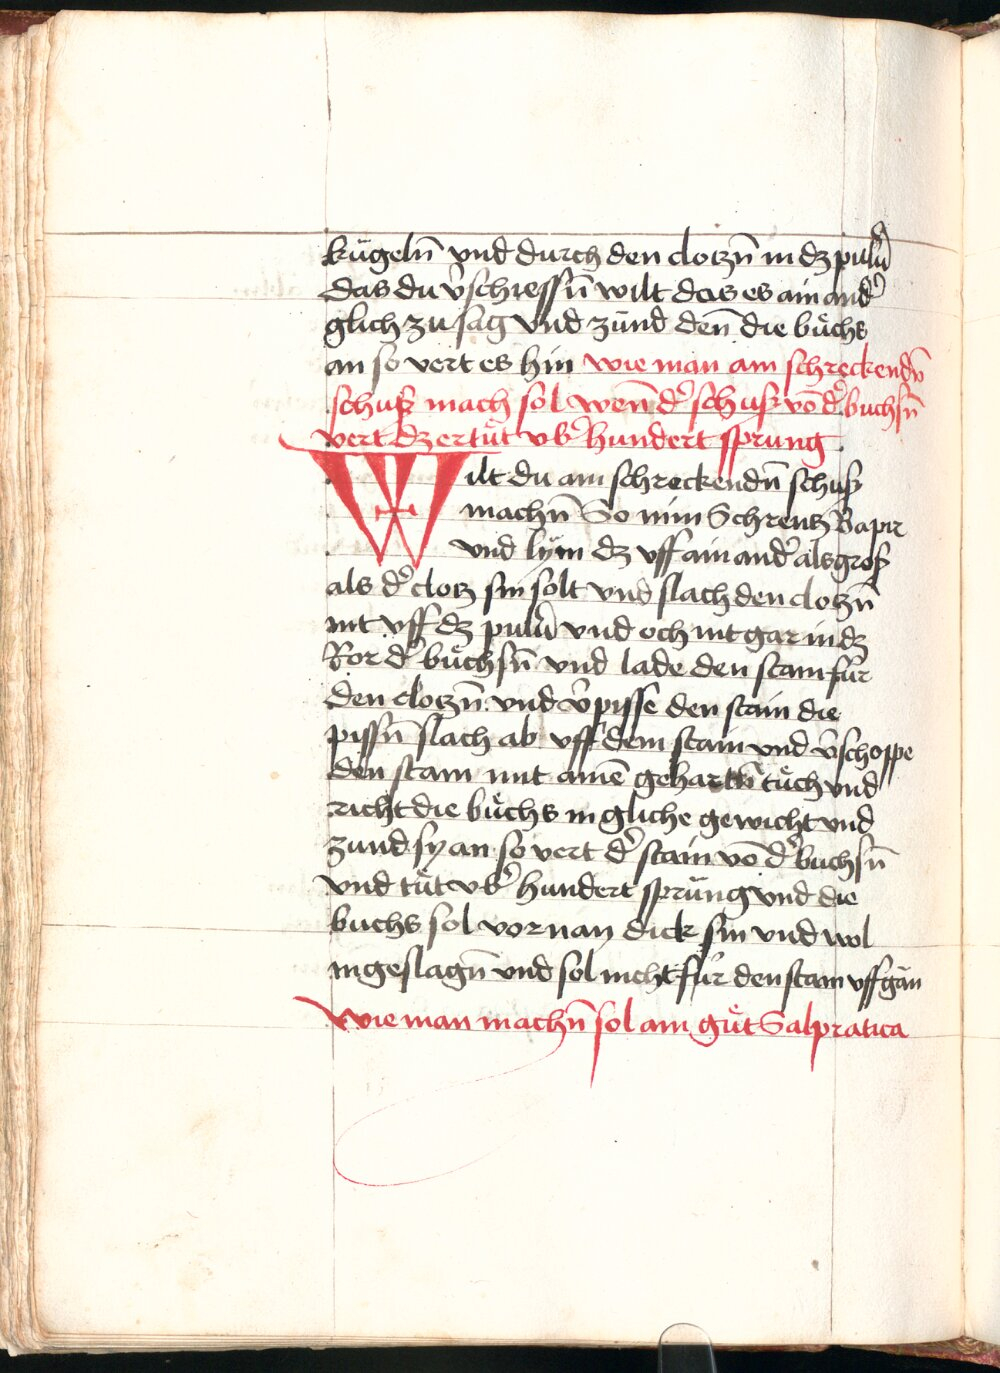 kügeln̄ vnd durch den clotzn̄ in dz pulu̓
das du v̓schiessn̄ wilt das es ain and̓
glich zu sag vnd zünd den̄ die bu̇chs
an so vert es hin wie man ain schreckendn̄
schusz mach sol wen̄ d̓ schusz vō d̓ buchsn̄
vert dz er tu̇t vb̓ hundert sprung
Wilt du ain schreckendn̄ schusz
machn̄ So nim Schrentz Bapir
vnd lym dz vff ain and̓ als grosz
als d̓ clotz sin solt vnd slach den clotzn̄
nit vff dz pulu̓ vnd och nit gar in dz
Ror d̓ bu̇chsn̄ vnd lade den stain für
den clotzn̄ vnd v̓pisse den stain die
pissn̄ slach ab vff dem stain vnd v̓schoppe
den stain mit ainē gehartn̄ tu̇ch vnd
richt die bu̇chs in gliche gewicht vnd
zund sy an so vert d̓ stain vō d̓ buchsn̄
vnd tu̇t vb̓ hundert sprüng vnd die
buchs sol vornan dick sin vnd wol
ingeslagn̄ vnd sol nicht für den stain vffgan
Wie man machn̄ sol ain gu̇t Salpratica